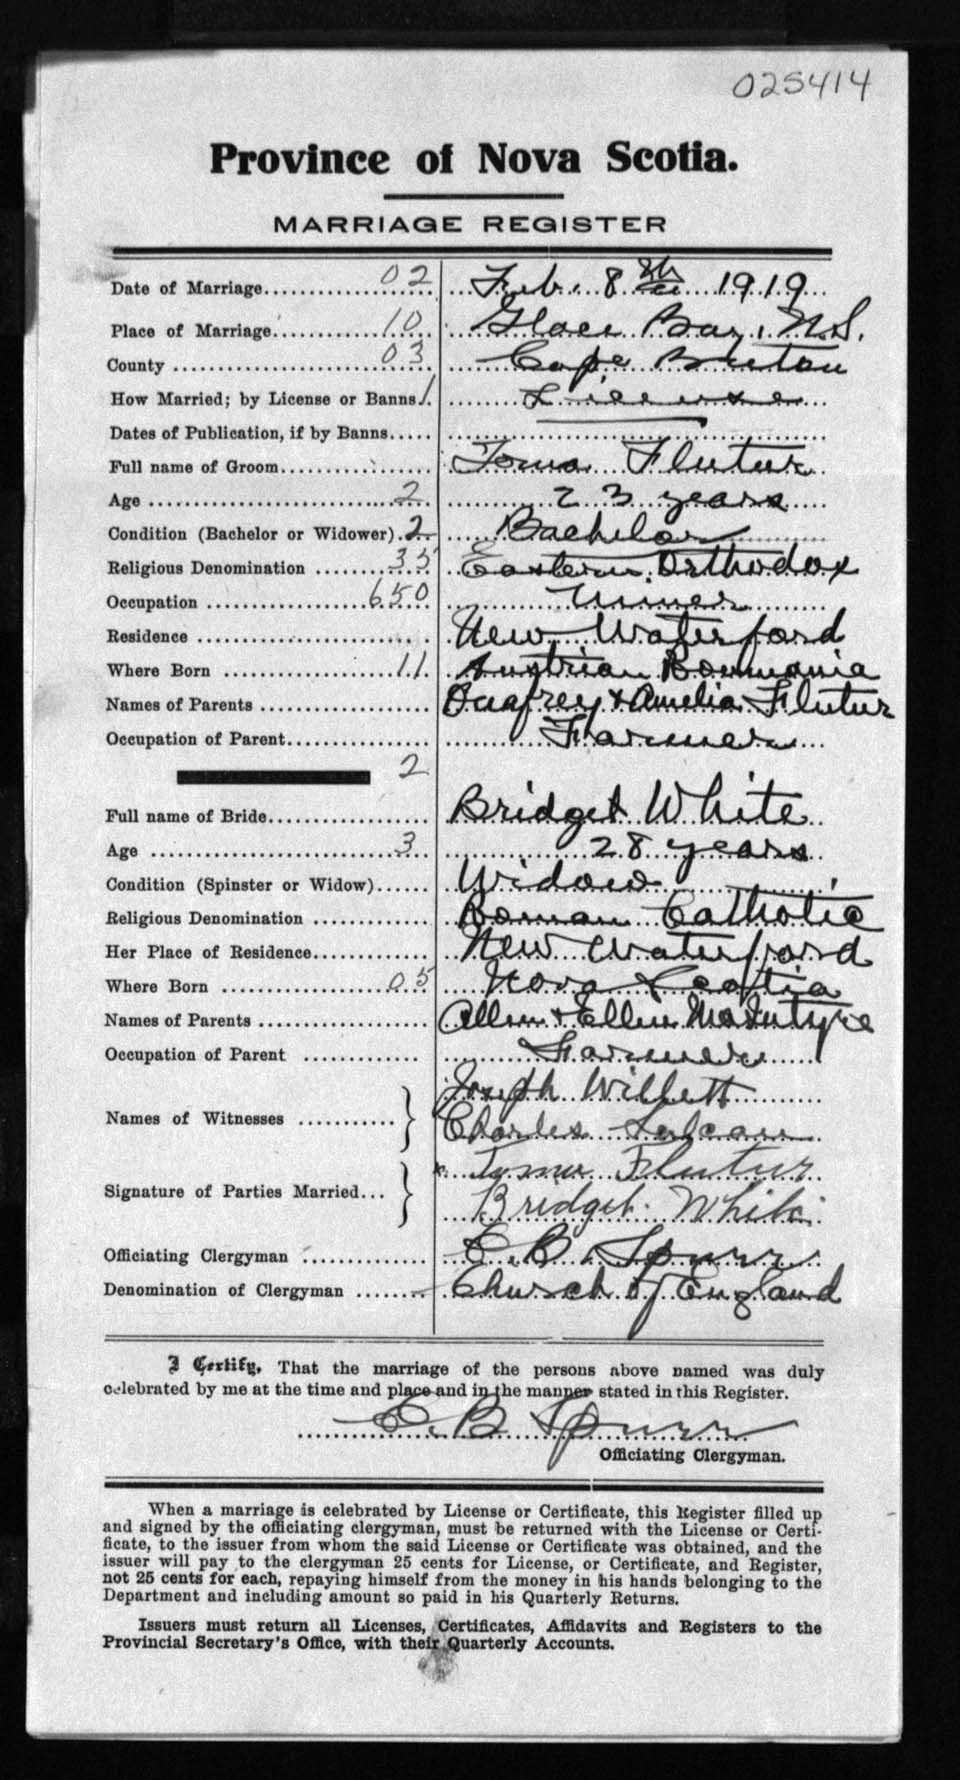 025414
Province of Nova Scotia.
MARRIAGE REGISTER
Date of Marriage 02 Feb. 8th 1919
Place of Marriage 10 Glace Bay, N.S.
County 03 Cape Breton
How Married; by License or Banns 1. License
Dates of Publication, if by Banns
Full name of Groom Toma Flutur
Age 2 23 years
Condition (Bachelor or Widower) 2 Bachelor
Religious Denomination 35 Eastern Orthodox
Occupation 650 Miner
Residence New Waterford
Where Born 11 Austrian Roumania
Names of Parents & Amelia Flutur
Occupation of Parent Farmer
2
Full name of Bride Bridget White
Age 3 28 years
Condition (Spinster or Widow) Widow
Religious Denomination Roman Catholic
Her Place of Residence New Waterford
Where Born 05 Nova Scotia
Names of Parents Allen & Ellen McIntyre
Occupation of Parent Farmer
Names of Witnesses Joseph Willett
Charles
Signature of Parties Married x Flutur
Bridget White
Officiating Clergyman C. B. Spurr
Denomination of Clergyman Church of England
I Certify, That the marriage of the persons above named was duly
celebrated by me at the time and place and in the manner stated in this Register.
C. B Spurr
Officiating Clergyman.
When a marriage is celebrated by License or Certificate, this Register filled up
and signed by the officiating clergyman, must be returned with the License or Certi-
ficate, to the issuer from whom the said License or Certificate was obtained, and the
issuer will pay to the clergyman 25 cents for License, or Certificate, and Register,
not 25 cents for each, repaying himself from the money in his hands belonging to the
Department and including amount so paid in his Quarterly Returns.
Issuers must return all Licenses, Certificates, Affidavits and Registers to the
Provincial Secretary's Office, with their Quarterly Accounts.